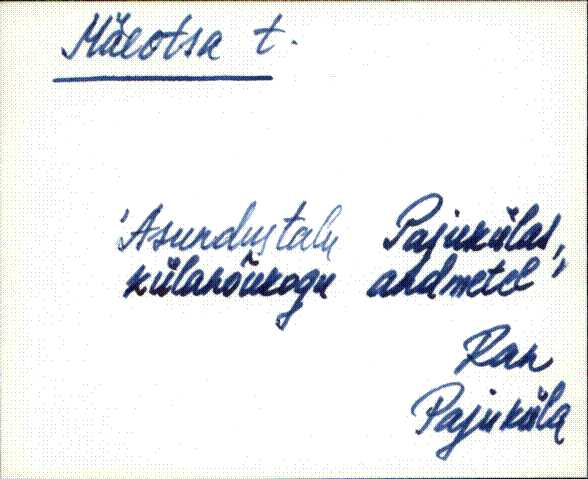 Mäeotsa t.
'Asundustalu Pajukülas,
külanõukogu andmetel'
Ran
Pajuküla